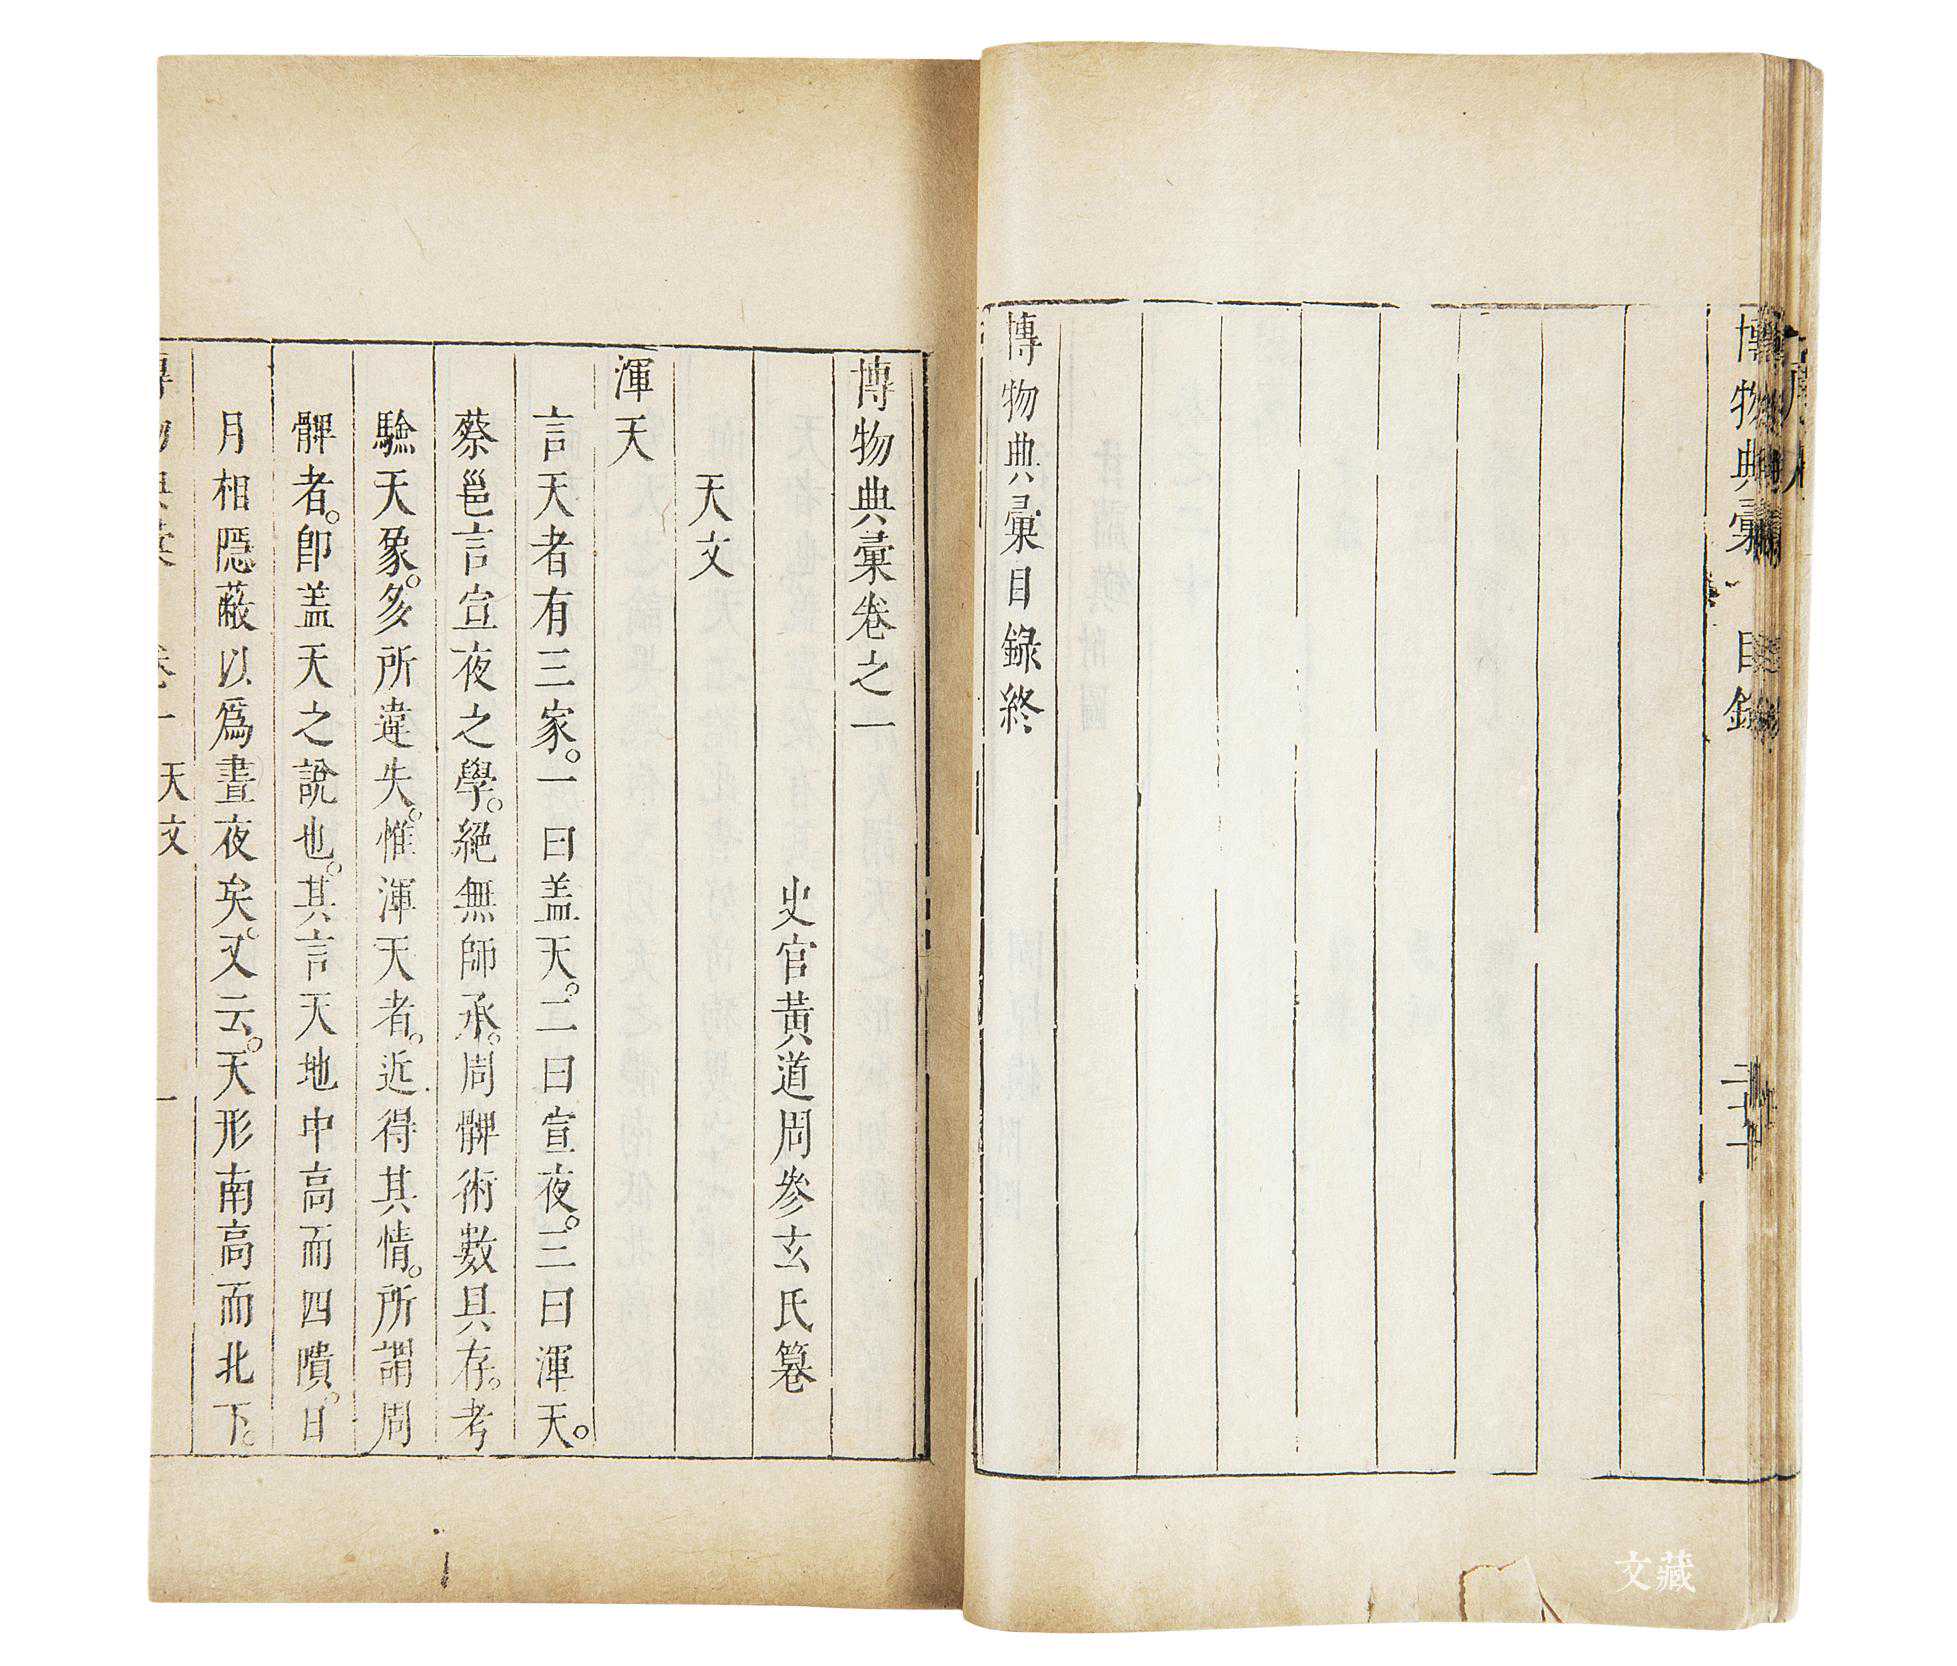 博物典彙 目錄
博物典彙目錄終
博物典彙卷之一
史官黃道周參玄氏纂
天文
渾天
言天者有三家。一曰盖天。二曰宣夜。三曰渾天。
蔡邕言宣夜之學。絕無師承。周髀術數具存。考
驗天象。多所違失。惟渾天者。近得其情。所謂周
髀者。即盖天之說也。其言天地中高而四隤。日
月相隱蔽以為晝夜矣。又云。天形南高而北下。
卷一 天文 一
文藏